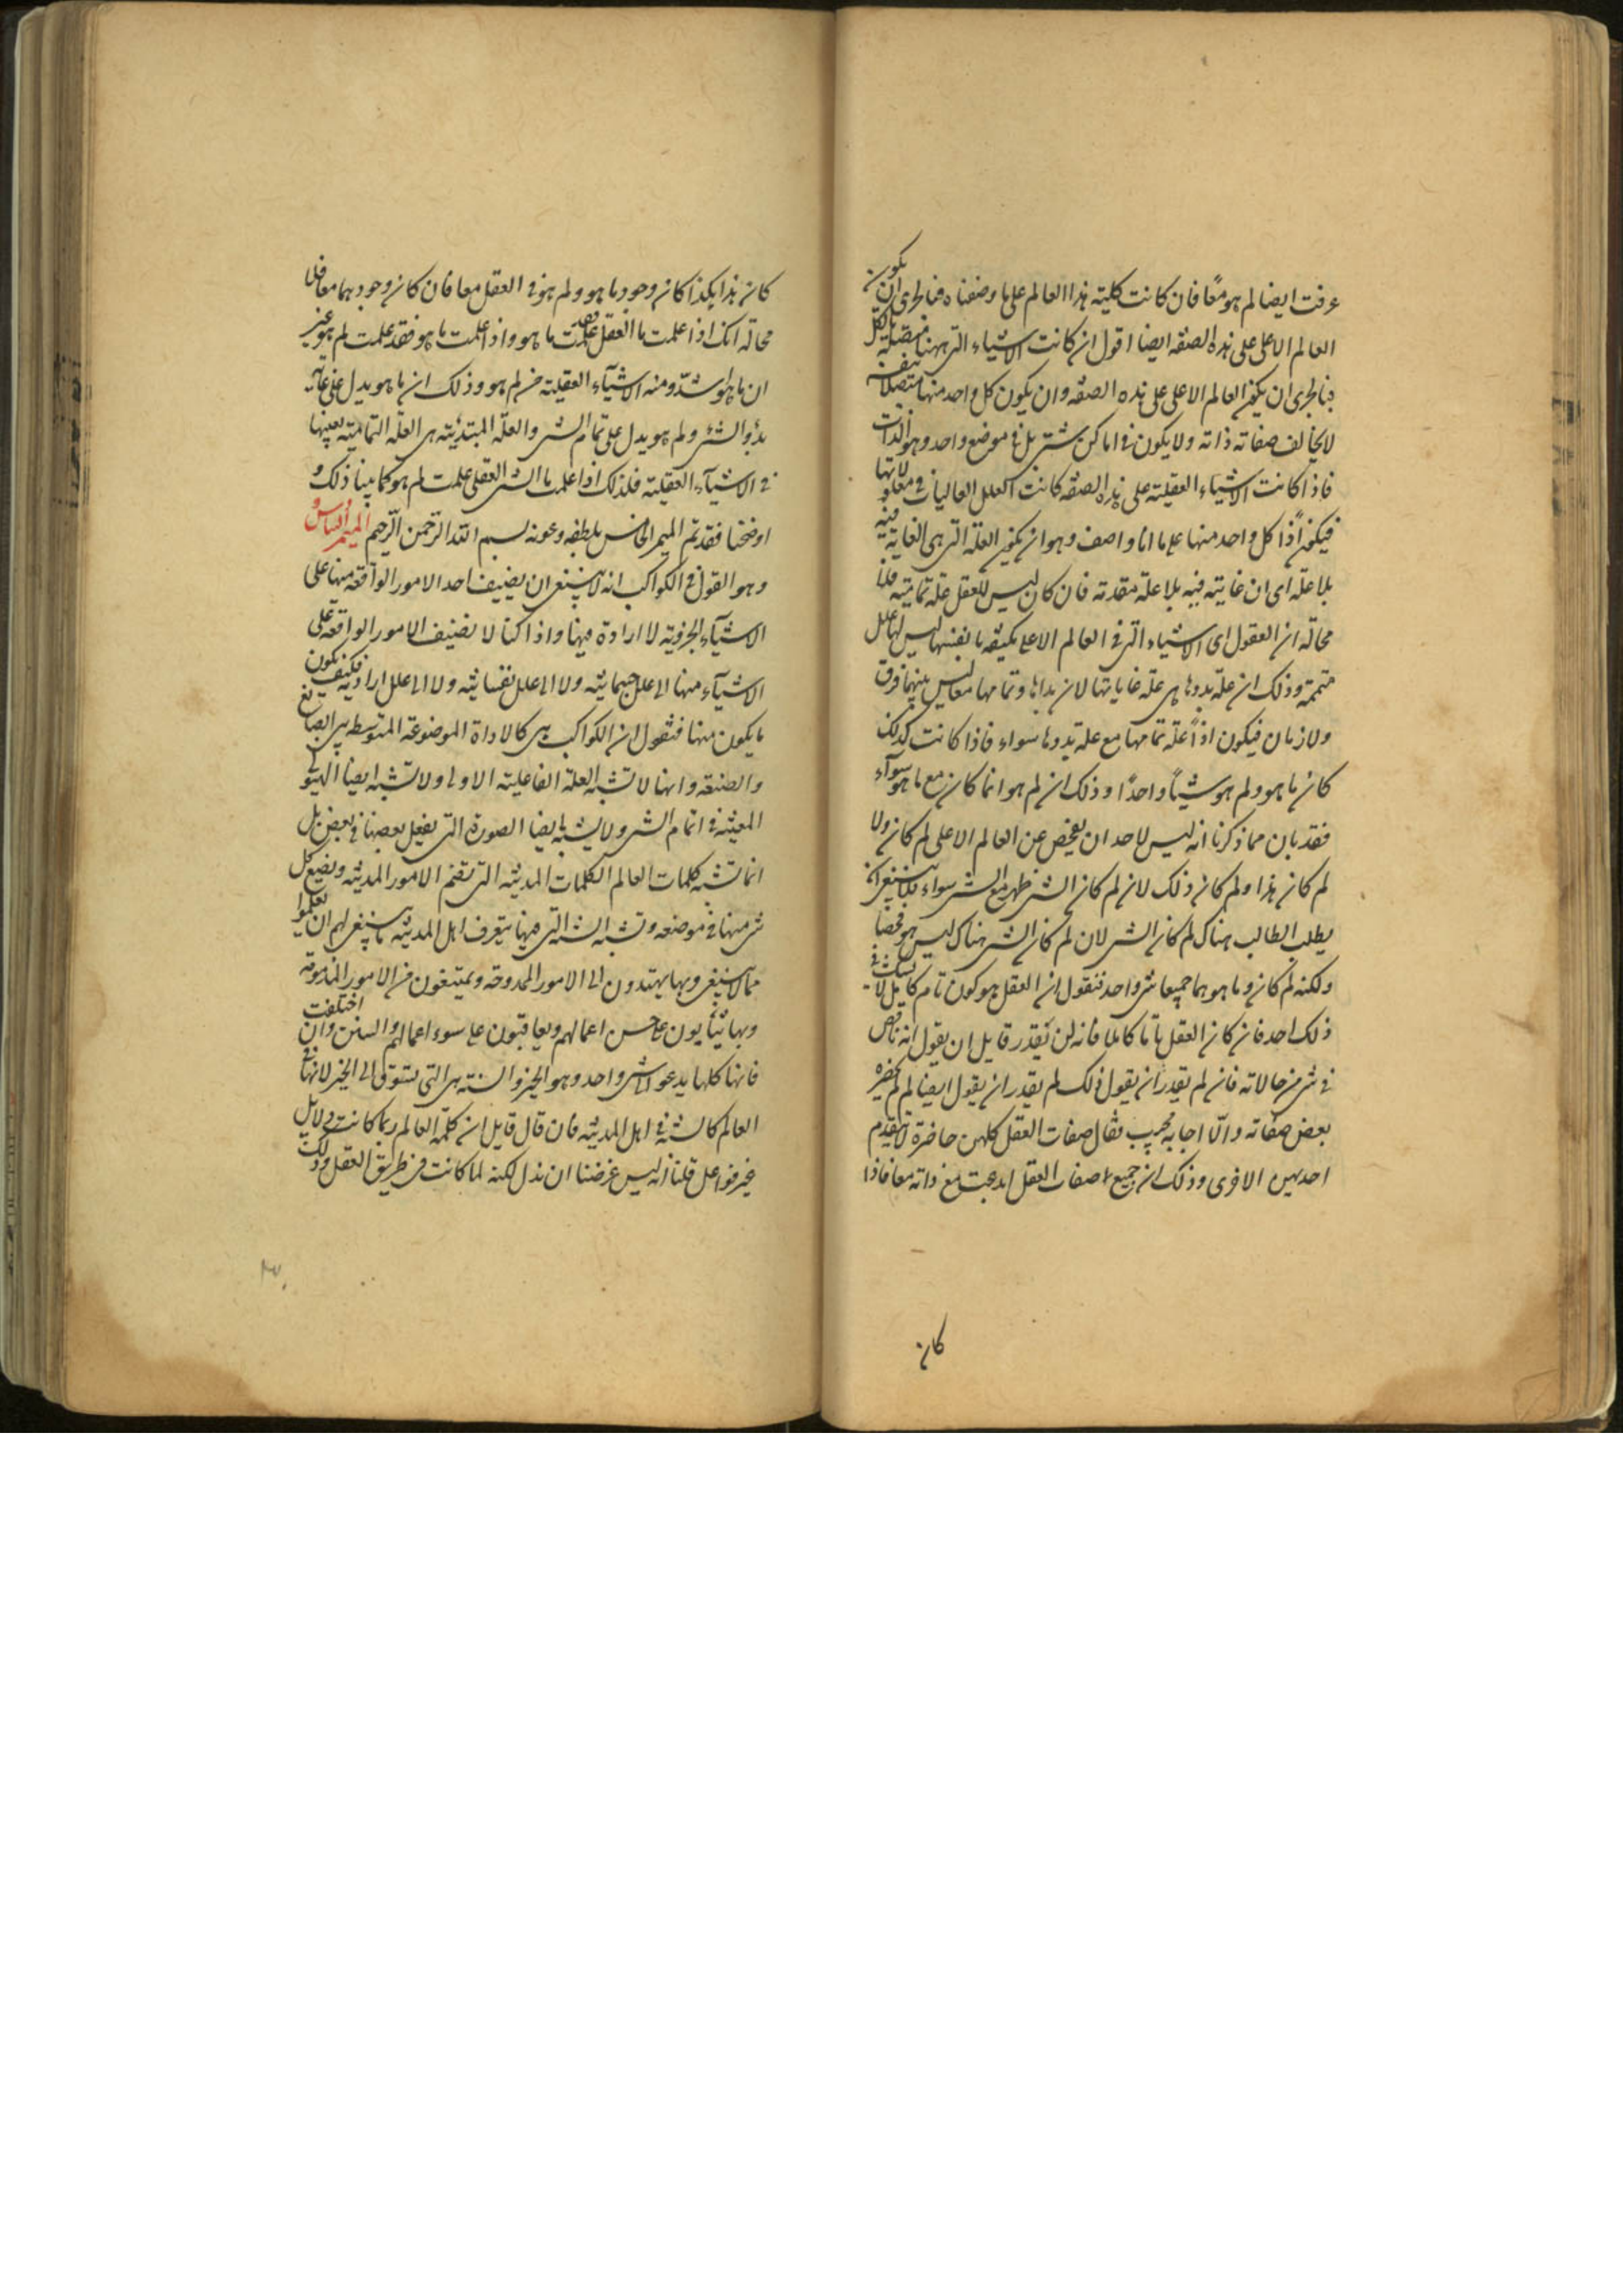 عرفت ايضا لم هو معًا فان كانت كلية هذا العالم على ما وصفناه فبالحرى ان يكون
العالم الاعلى على هذه الصفة ايضا اقول ان كانت الاشياء التى ههنا متصلة بالكل
فبالحرى ان يكون العالم الاعلى على هذه الصفة وان يكون كل واحد منها متصلا بنفسه
لا يخالف صفاته ذاته ولا يكون فى اماكن شتى بل فى موضع واحد وهو الذات
فاذا كانت الاشياء العقلية على هذه الصفة كانت العلل العاليات فى معلولاتها
فيكون اذًا كل واحد منها على ما انا واصف وهو ان يكون العلة التى هى الغاية فيه
بلا علة اى ان غايته فيه بلا علة متقدمة فان كان ليس للعقل علة تمامية قلنا
محالة ان العقول اى الاشياء التى فى العالم الاعلى مكتفية بانفسها ليس لها علل
متممة وذلك ان علة بدوها هى علة غاياتها لان بداها وتمامها معا ليس بينهما فرق
ولا زمان فيكون اذًا علة تمامها مع علة بدوها سواء فاذا كانت كذلك
كان ما هو ولم هو شيئًا واحدًا وذلك ان لم هو انما كان مع ما هو سوآء
فقد بان مما ذكرنا انه ليس لاحد ان يفحص عن العالم الاعلى لم كان ولا
لم كان هذا ولم كان ذلك لان لم كان الشى ظهر مع الشى سواء فلا ينبغى ان
يطلب الطالب هناك لم كان الشى لان لم كان الشى هناك ليس هو فحصا
ولكنه لم كان وما هو هما جميعا شى واحد فنقول ان العقل هو كون تام كامل لا يشك فى
ذلك احد فان كان العقل تاما كاملا فانه لن يقدر قايل ان يقول انه ناقص
فى شى من حالاته فان لم يقدر ان يقول ذلك لم يقدر ان يقول ايضا لم لم يحضره
بعض صفاته والّا اجابه مجيب فقال صفات العقل كلهن حاضرة لا يتقدم
احديهن الاخرى وذلك ان جميع صفات العقل ابدعت مع ذاته معا فاذا
كان
كان هذا هكذا كان وجود ما هو ولم هو فى العقل معا فان كان وجودهما معا فلا
محالة انك اذا علمت ما العقل فقد علمت ما هو واذا علمت ما هو فقد علمت لم هو غير
ان ما هو اشدّ ومنه الاشيآء العقلية من لم هو وذلك ان ما هو يدل على غاية
بدؤ الشئ ولم هو يدل على تمام الشى والعلة المبتدئية هى العلة التمامية بعينها
فى الاشيآء العقلية فلذلك اذا علمت ما الشى العقلى علمت لم هو كما بينا ذلك و
اوضحنا فقد تم الميمر الخامس بلطفه وعونه بسم الله الرّحمن الرّحيم الميمر السادس و
وهو القول فى الكواكب انه لا ينبغى ان يضيف احد الامور الواقعة منها على
الاشيآء الجزوية لا ارادة فيها واذا كنا لا نضيف الامور الواقعة على
الاشيآء منها الى علل جسمانية ولا الى علل نفسانية ولا الى علل ارادية فكيف يكون
ما يكون منها فنقول ان الكواكب هى كالاداة الموضوعة المتوسطة بين الصانع
والصنعة وانها لا تشبه العلة الفاعلية الاولى ولا تشبه ايضا الهيولى
المعينة فى اتمام الشى ولا يشبه ايضا الصورة التى يفعل بعضها فى بعض بل
انما تشبه كلمات العالم الكلمات المدنية التى تضم الامور المدنية وتضع كل
شى منها فى موضعه وتشبه السنة التى فيها يتعرف اهل المدينة ما ينبغى لهم ان يعملوا
مما لا ينبغى وبها يهتدون الى الامور الممدوحة ويمتنعون من الامور المذمومة
وبها يثابون على حسن اعمالهم ويعاقبون على سوء اعمالهم والسنن وان اختلفت
فانها كلها يدعو الى شى واحد وهو الخير والسنة هى التى تسوق الى الخير لانها فى
العالم كالسنة فى اهل المدينة فان قال قايل ان كلمة العالم ربما كانت دلايل
غير فواعل قلنا انه ليس غرضنا ان ندل لكنه لما كانت من طريق العقل وذلك